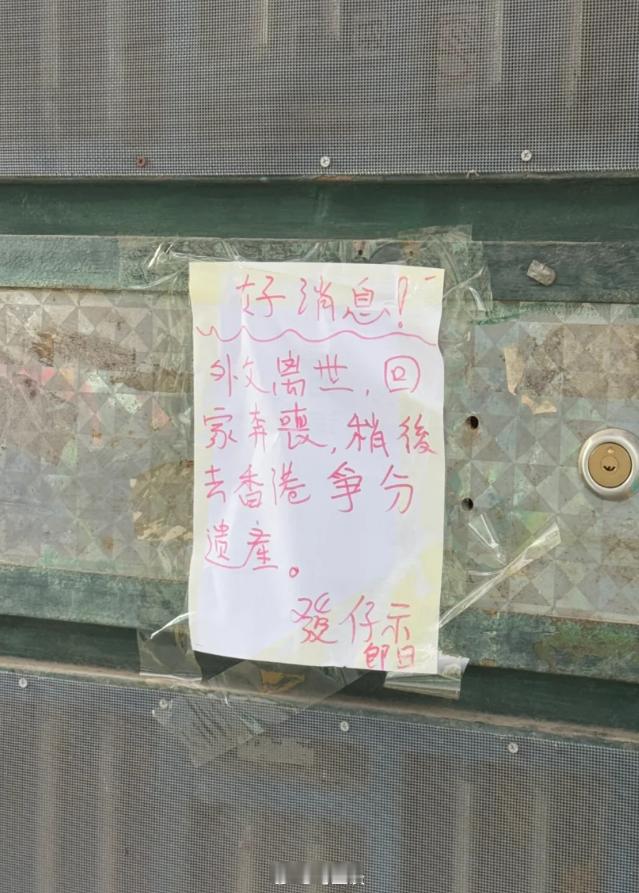 好消息!
外父离世,回
家奔喪,稍後
去香港争分
遗産。
發仔示
即日